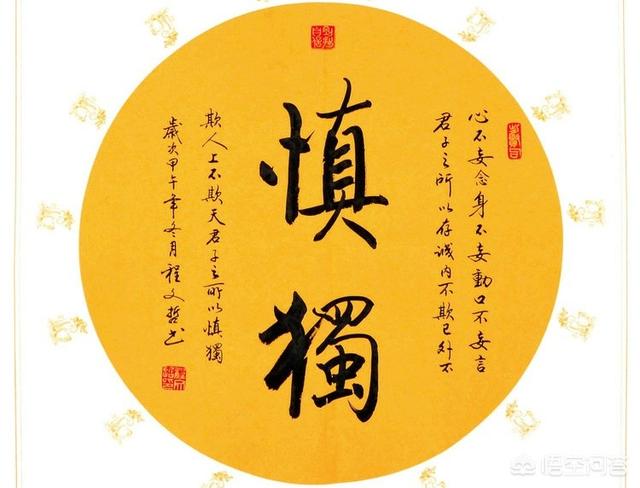 慎獨
心不妄念身不妄動口不妄言
君子之所以存誠内不欺己外不
欺人上不欺天君子之所以慎獨
歲次甲午年冬月程文哲书
悟空问答